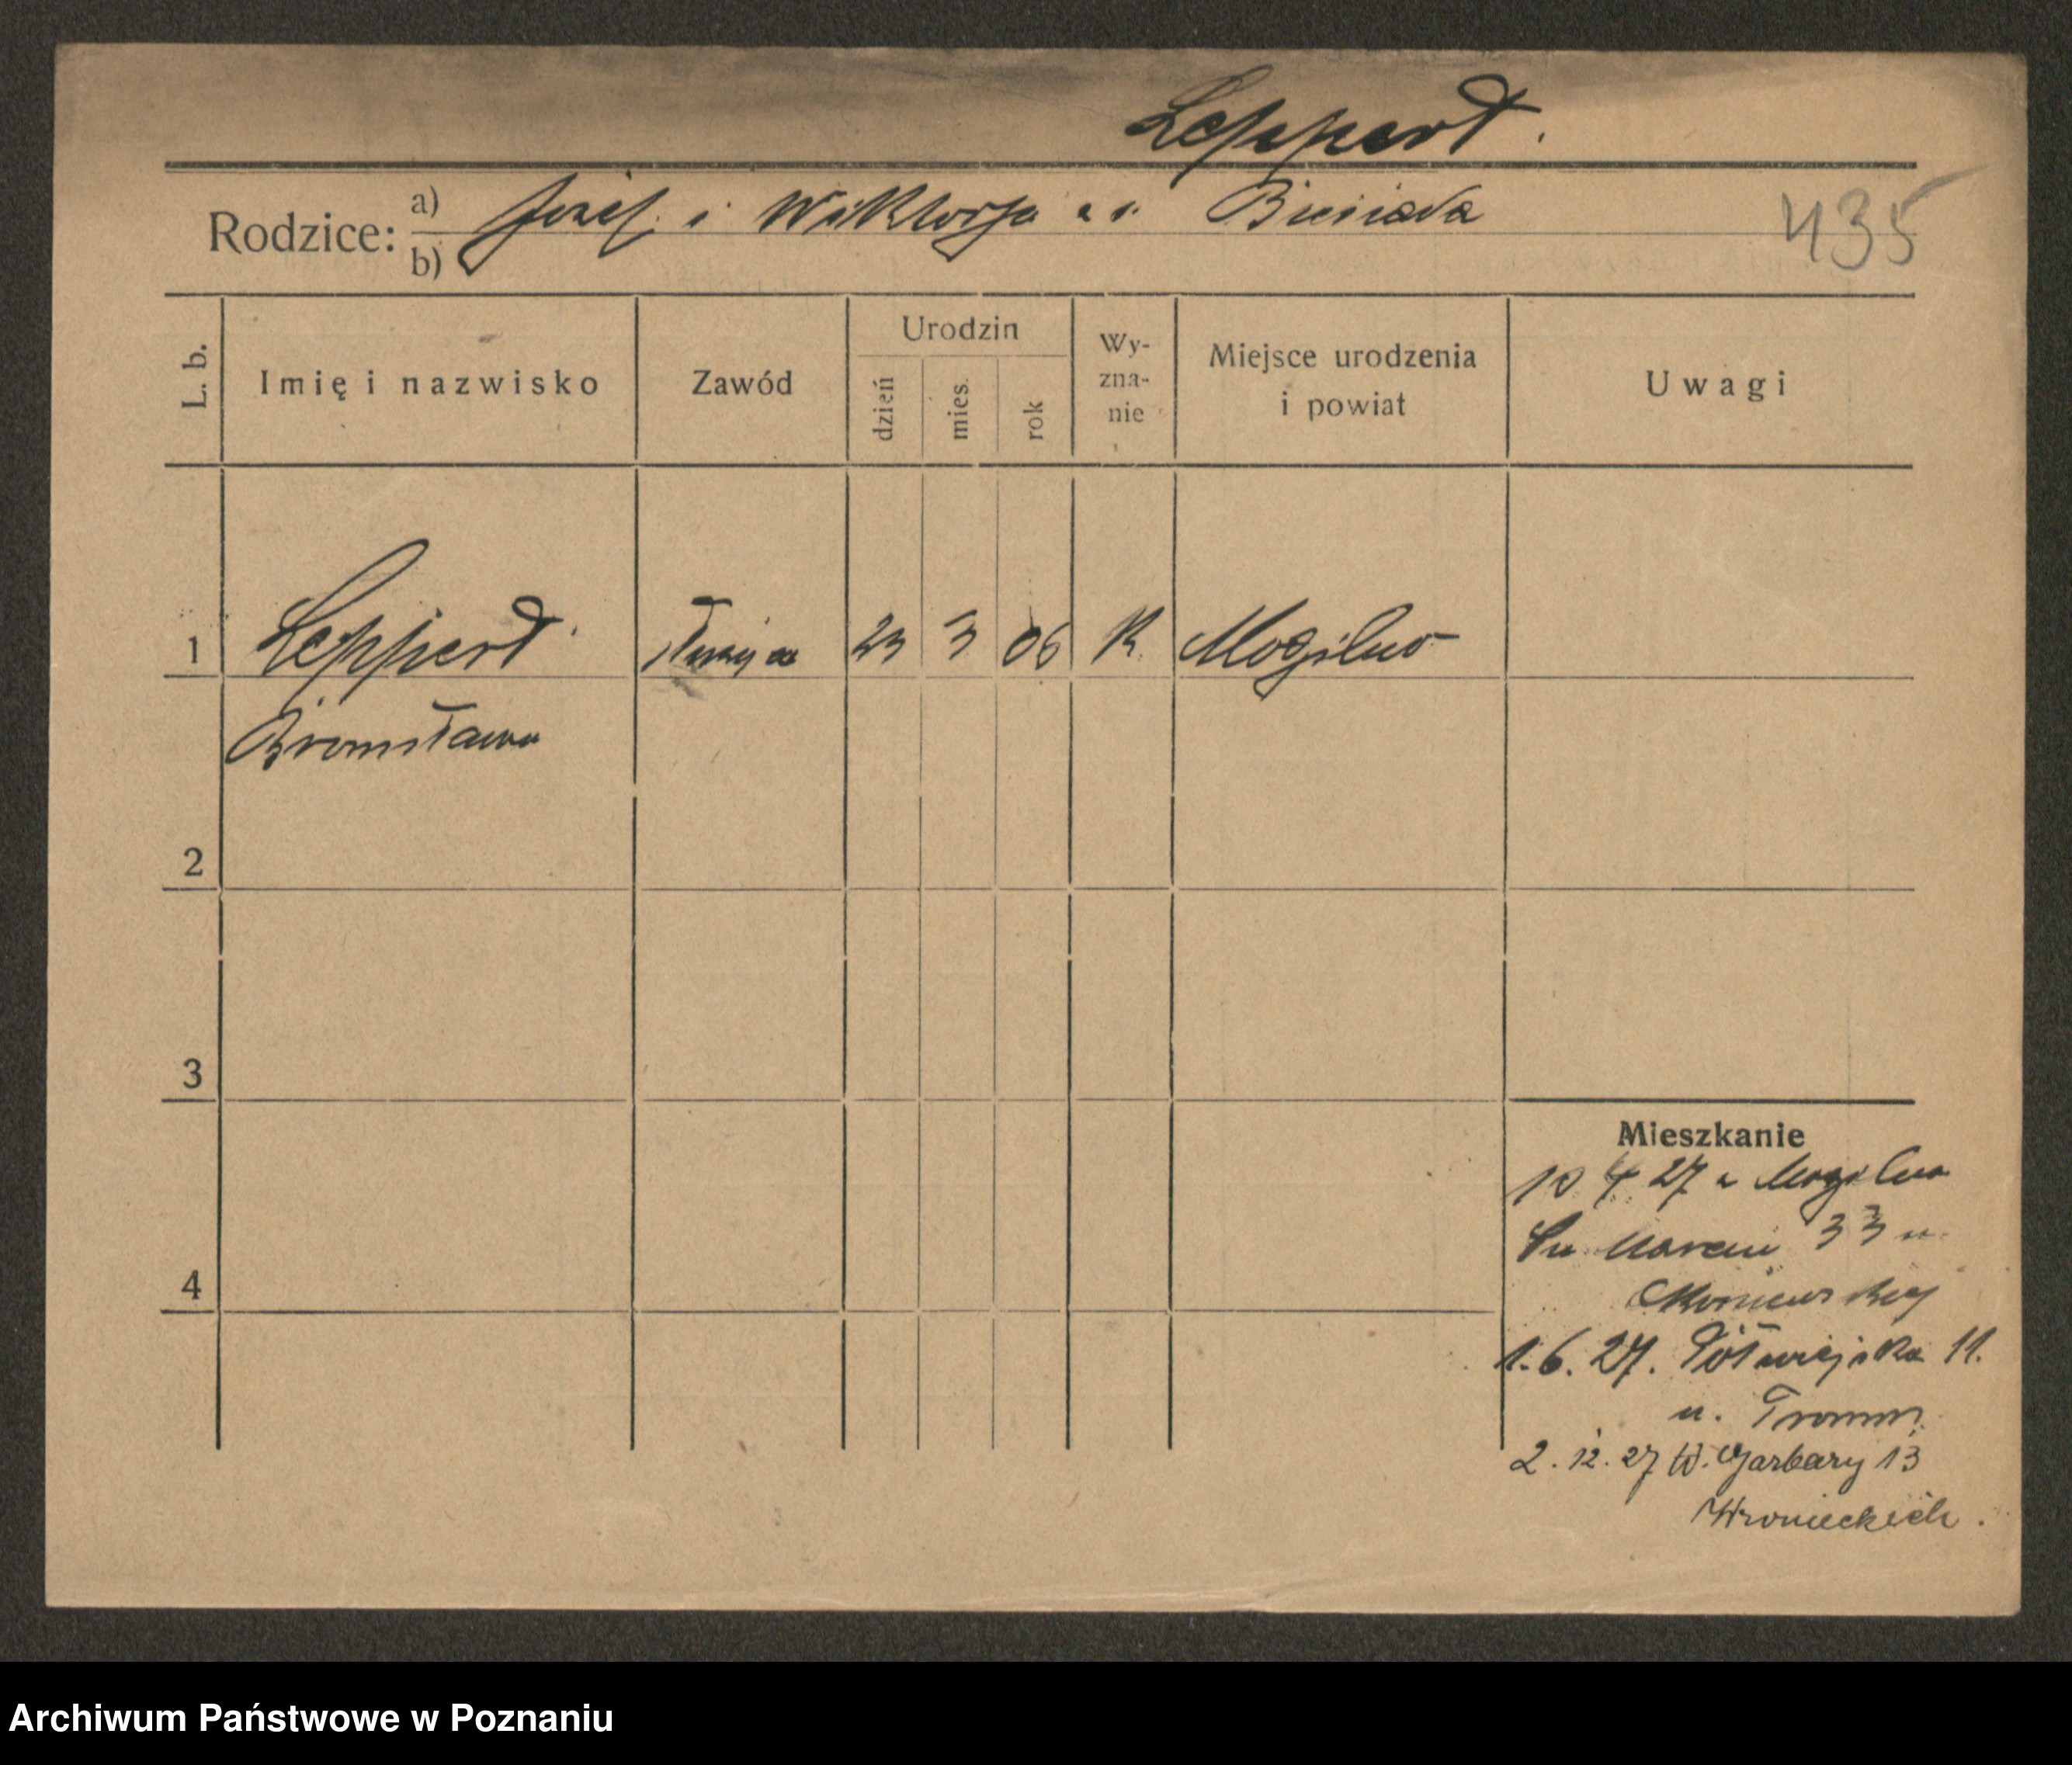 Leppert.
Rodzice: a) Józef i Wiktorja z d. Biesiada
b)
435
L. b.
Imię i nazwisko
Zawód
Urodzin
dzień
mies.
rok
Wy-
zna-
nie
Miejsce urodzenia
i powiat
Uwagi
1 Leppert służąca 23 3 06 K. Mogilno
Bronisława
2
3
4
Mieszkanie
10 4 27 z Mogilna
Św. Marcin 33 u.
1. 6. 27. Półwiejska 11.
u.
2. 12. 27 W. Garbary 13
Wronieckich.
Archiwum Państwowe w Poznaniu